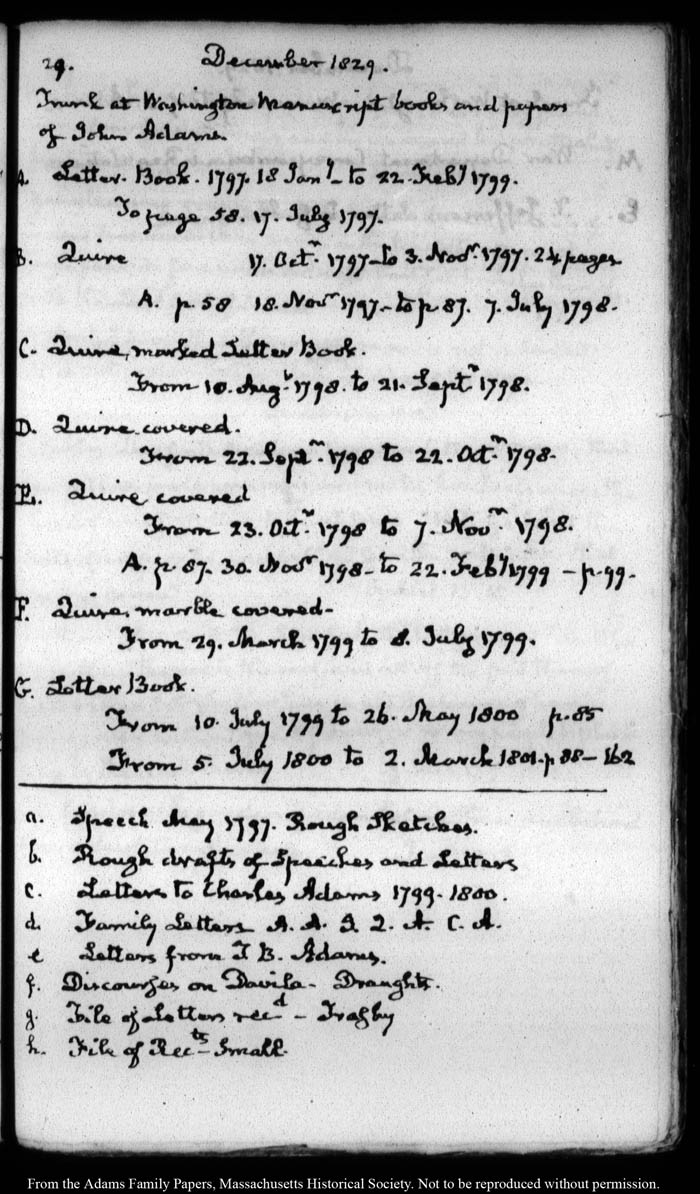 29. December 1829.
Trunk at Washington Manuscript books and papers
of John Adams
A. Letter. Book. 1797. 18 Jany. to 22. Feby 1799.
To page 58. 17. July 1797.
B. Quire 17. Octr. 1797 to 3. Novr. 1797. 24 pages
A. p. 58 18. Novr 1797 - to p 87. 7. July 1798.
C. Quire, marked Letter Book.
From 10. Augt. 1798. to 21. Septr 1798.
D. Quire covered.
From 22. Septr. 1798 to 22. Octr. 1798.
E. Quire covered
From 23. Octr. 1798 to 7. Novr. 1798.
A. p. 87. 30. Novr 1798 - to 22. Feby 1799 - p. 99.
F. Quire, marble covered -
From 29. March 1799 to 8. July 1799.
G. Letter Book.
From 10. July 1799 to 26. May 1800 p. 85
From 5. July 1800 to 2. March 1801. p 88 - 162
a. Speech May 1797. Rough Sketches.
b. Rough drafts of Speeches and Letters
c. Letters to Charles Adams 1799-1800.
d. Family Letters A. A. J. Q. A. C. A.
e Letters from T B. Adams.
f. Discourses on Davila - Draughts.
g. File of Letters recd -
h. File of Rects - Small.
From the Adams Family Papers, Massachusetts Historical Society. Not to be reproduced without permission.